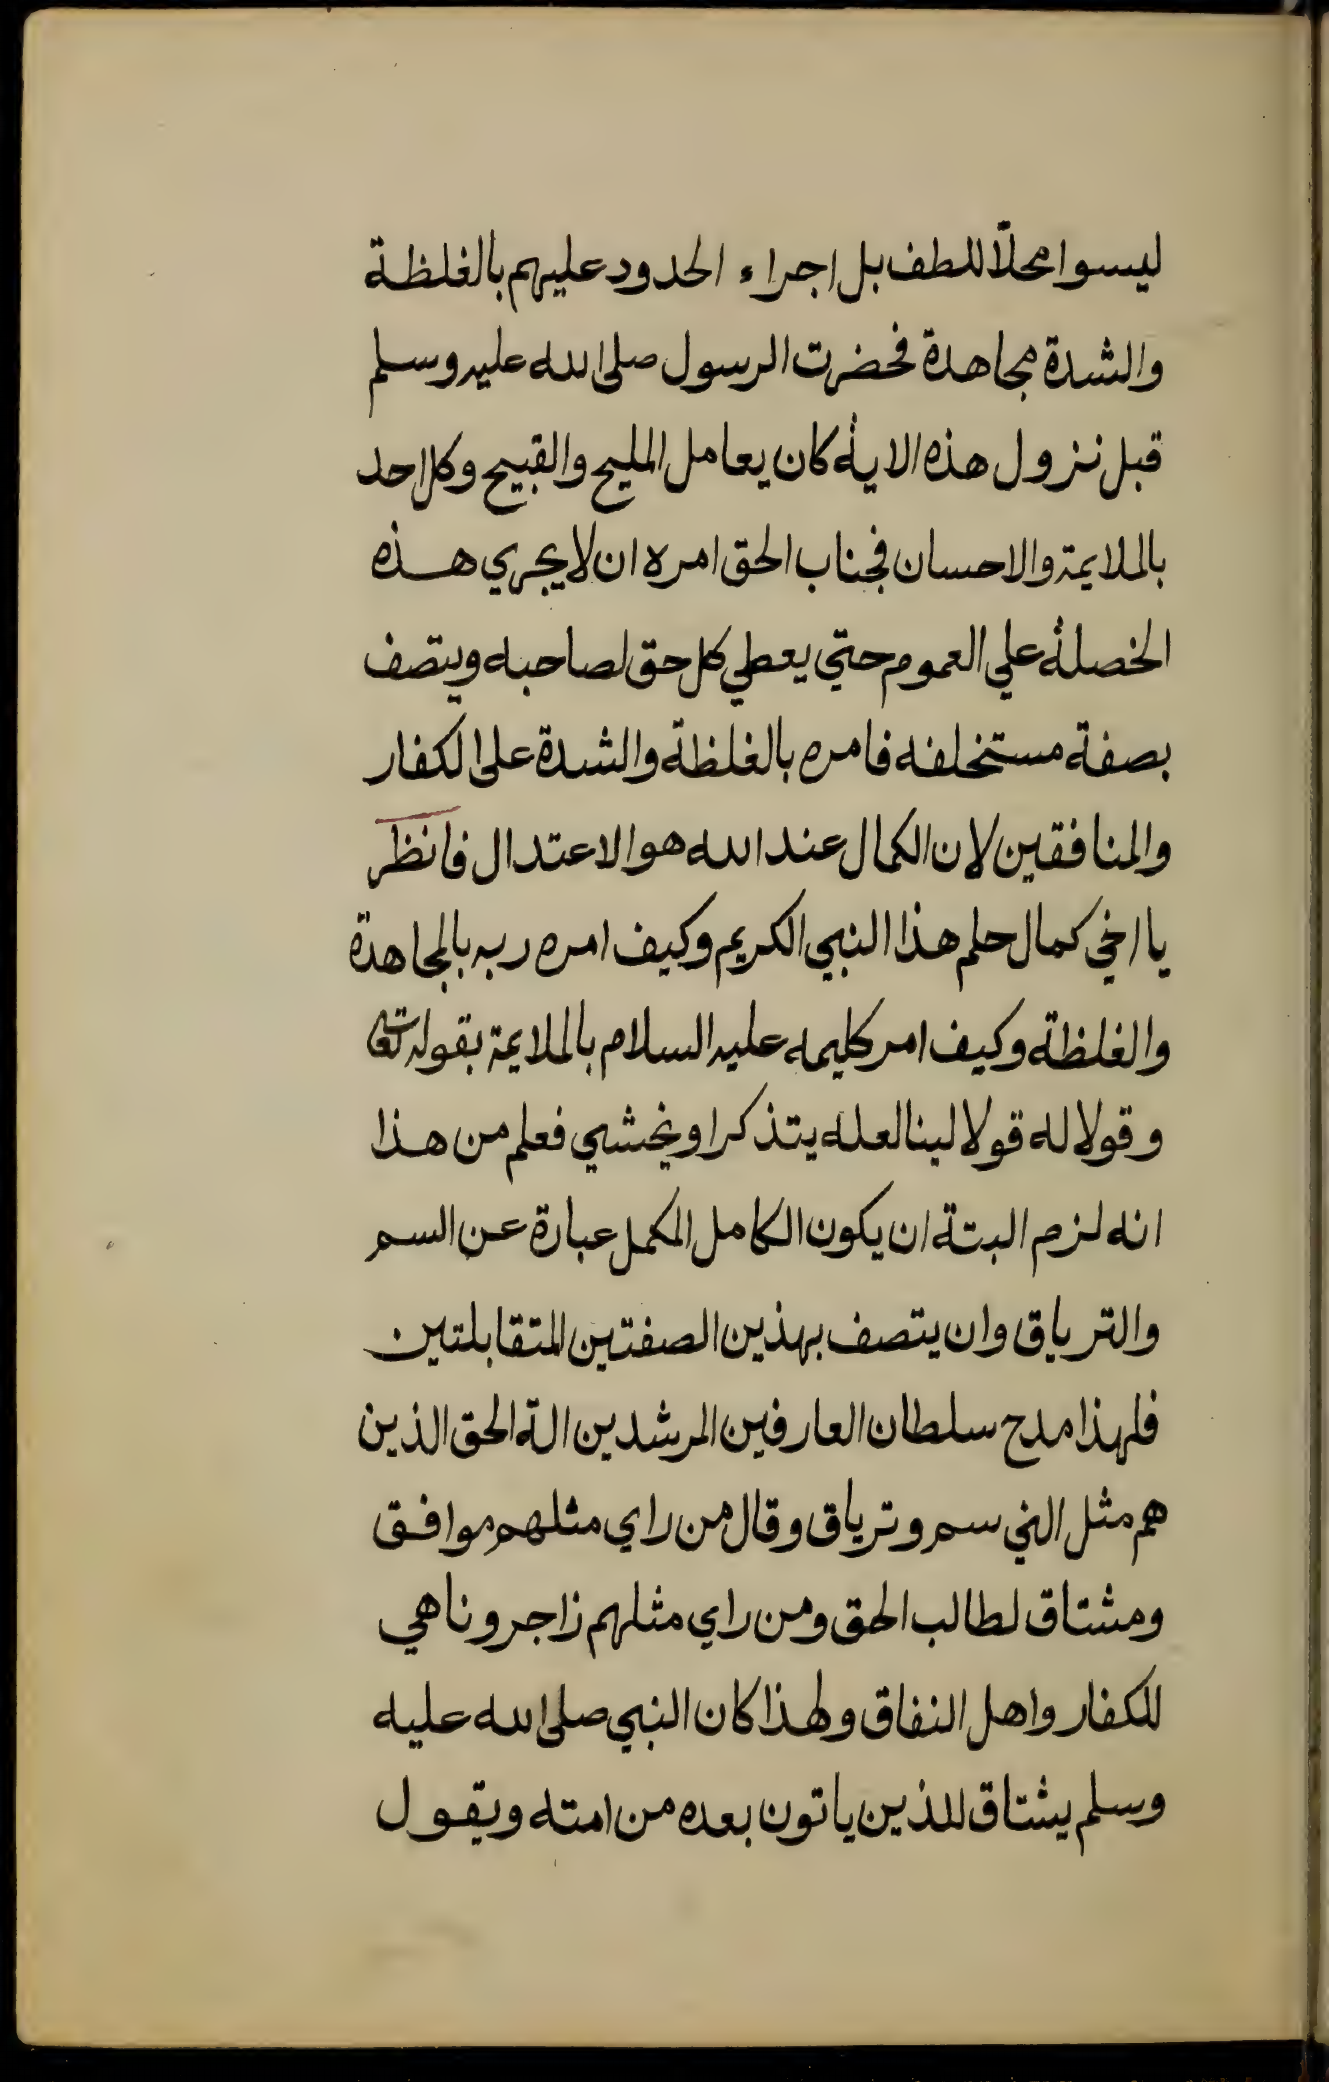 ليسوا محلّا للطف بل اجراء الحدود عليهم بالغلظة
والشدة مجاهدة فحضرت الرسول صلى الله عليه وسلم
قبل نزول هذه الاية كان يعامل المليح والقبيح وكل احد
بالملايمة والاحسان فجناب الحق امره ان لا يجري هذه
الخصلة علي العموم حتي يعطي كل حق لصاحبه ويتصف
بصفة مستخلفه فامره بالغلظة والشدة على الكفار
والمنافقين لان الكمال عند الله هو الاعتدال فانظر
يا اخي كمال حلم هذا النبي الكريم وكيف امره ربه بالمجاهدة
والغلظة وكيف امر كليمه عليه السلام بالملايمة بقوله تعا
وقولا له قولا لينا لعله يتذكر او يخشي فعلم من هذا
انه لزم البتة ان يكون الكامل المكمل عبارة عن السم
والترياق وان يتصف بهذين الصفتين المتقابلتين
فلهذا مدح سلطان العارفين المرشدين الة الحق الذين
هم مثل الني سم وترياق وقال من راي مثلهم موافق
ومشتاق لطالب الحق ومن راي مثلهم زاجر وناهي
للكفار واهل النفاق ولهذا كان النبي صلى الله عليه
وسلم يشتاق للذين ياتون بعده من امته ويقول